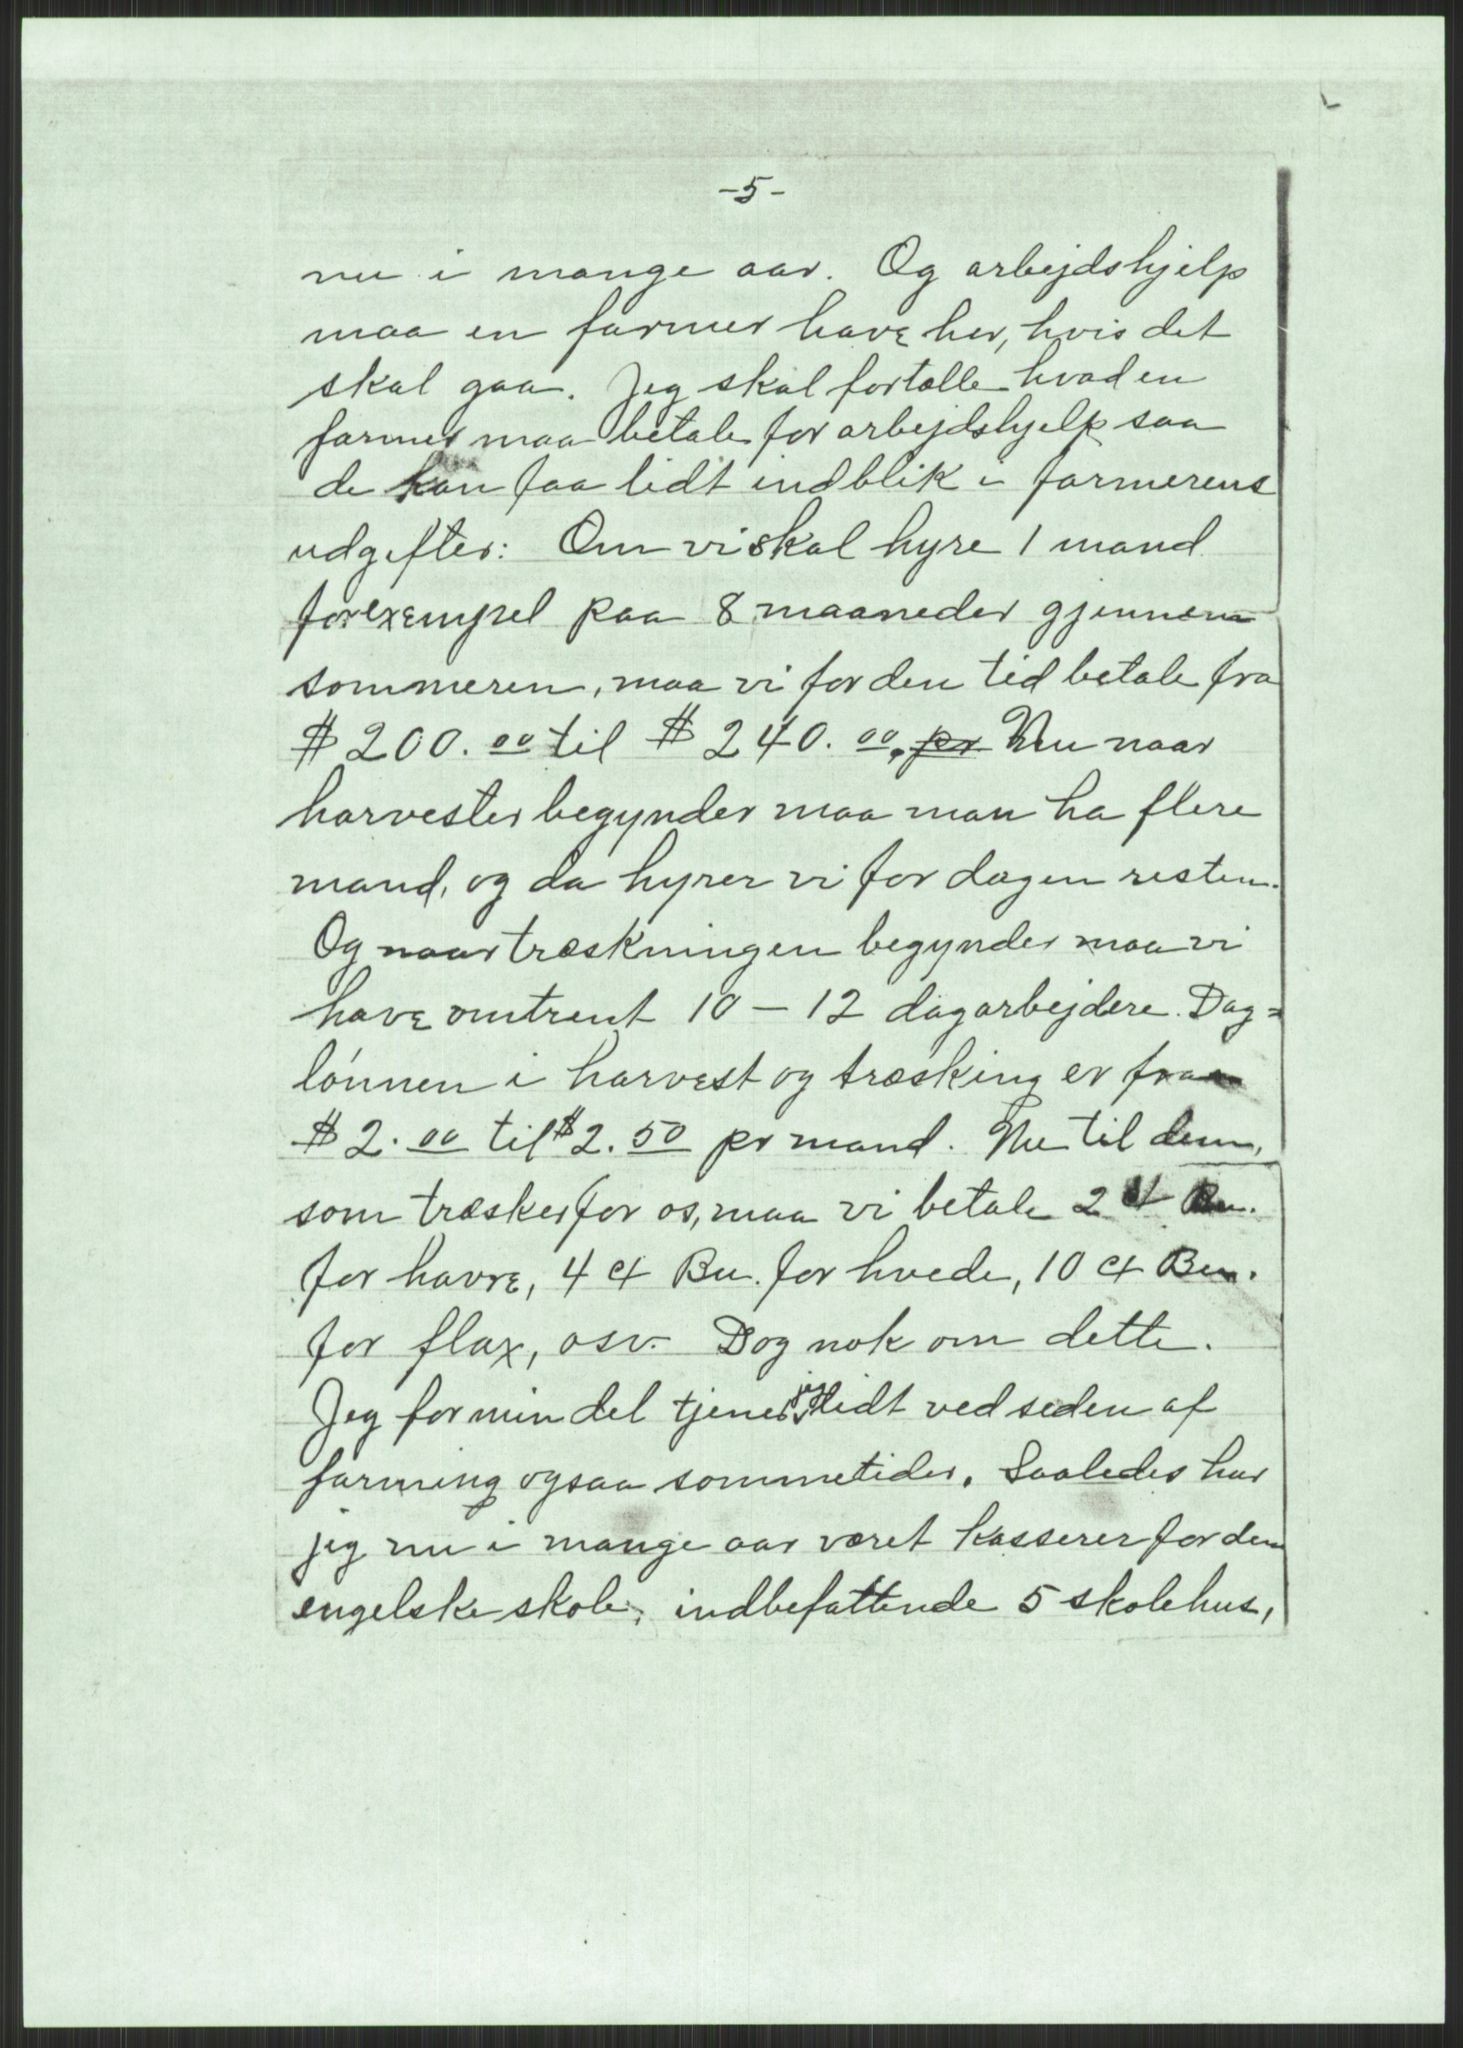 -5-
nu i mange aar. Og arbejdshjelp
maa en farmer have her, hvis det
skal gaa. Jeg skal fortælle hvad en
farmer maa betale for arbejdshjelp saa
de kan faa lidt indblik i farmerens
udgifter: Om vi skal hyre 1 mand
forexempel paa 8 maaneder gjennem
sommeren, maa vi for den tid betale fra
$200.00 til $240.00. pr Nu naar
harvester begynder maa man ha flere
mand, og da hyrer vi for dagen resten.
Og naar træskningen begynder maa vi
have omtrent 10-12 dagarbejdere. Dag=
lønnen i harvest og træsking er fra
$2.00 til $2.50 pr mand. Nu til dem,
som træsker for os, maa vi betale 2 ct Bu.
for havre, 4 ct Bu. for hvede, 10 ct Bu.
for flax, osv. Dog nok om dette.
Jeg for min del tjener jeg lidt ved seden af
farming ogsaa sommetider. Saaledes har
jeg nu i mange aar været kasserer for den
engelske skole, indbefattende 5 skolehus,